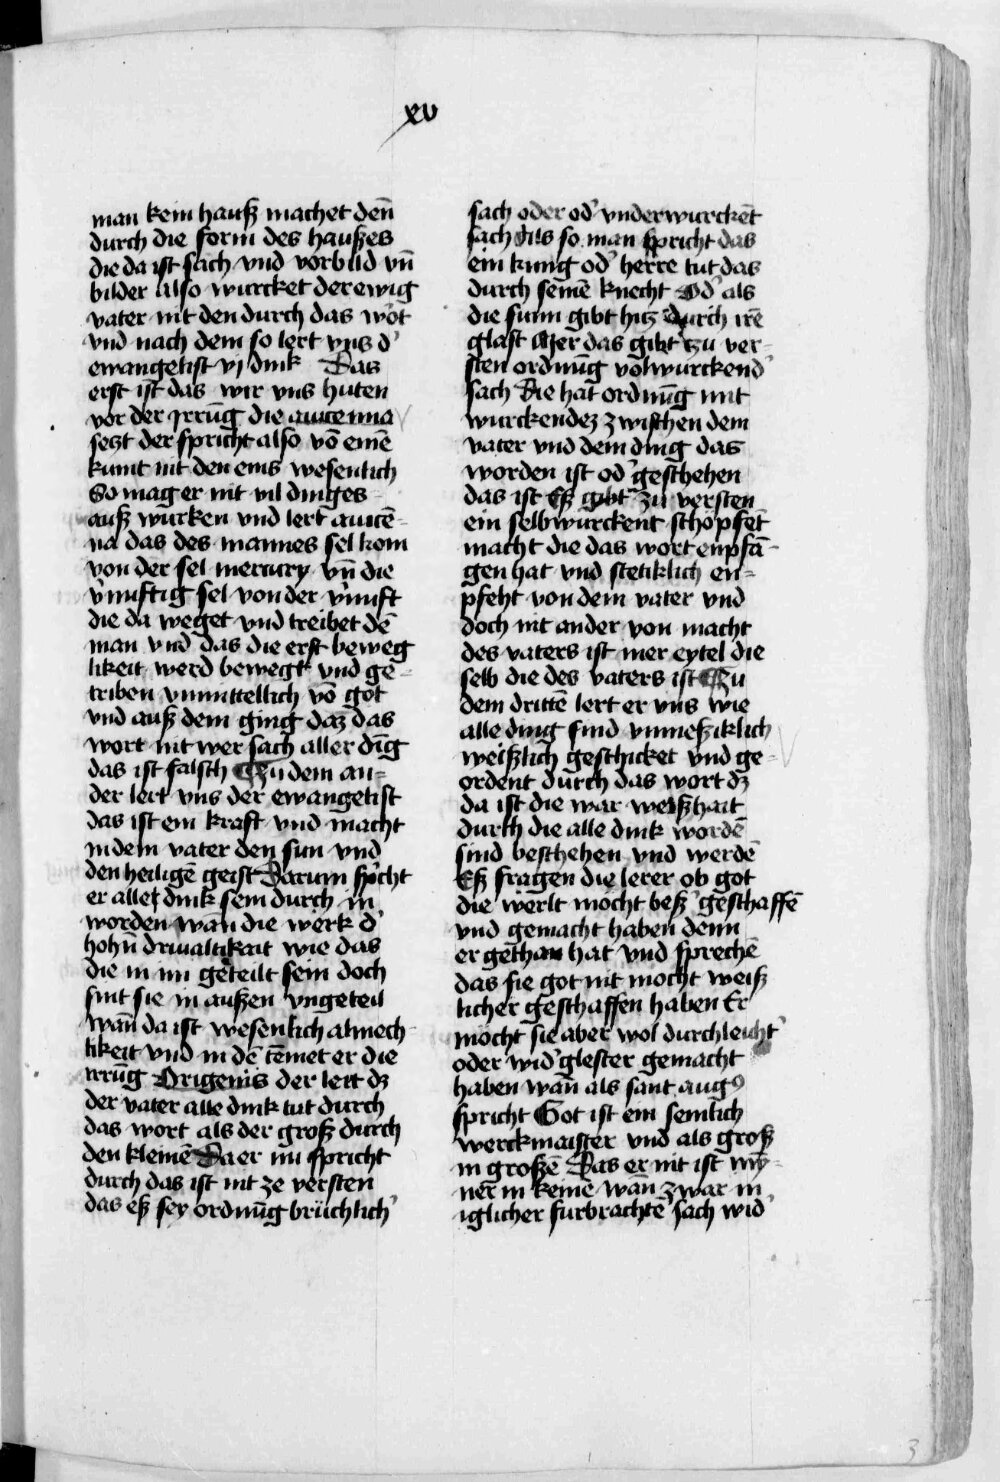 xv
man kein hauß machet den̄
durch die form des haußes
die da ist sach vnd vorbild vn̄
bilder Also wurcket der ewig
vater nit den durch das wort
vnd nach dem so lert vns d'
ewangelist vj dink Das
erst ist das wir vns huten
vor der jrrūg die auicenna
setzt der spricht also vō einē
kumt nit den eins wesenlich
So mag er nit vil dinges
auß wurken vnd lert auicē-
na das des mannes sel kom
von der sel mercury vn̄ die
v'nuftig sel von der v'nuft
die da weget vnd treibet dē
man vnd das die erst beweg
likeit werd bewegt vnd ge-
triben vnmittellich vō got
vnd auß dem ging daz das
wort nit wer sach aller dīg
das ist falsch Czu dem an-
der lert vns der ewangelist
das ist ein kraft vnd macht
in dem vater den sun vnd
den heiligē geist Darum sp'cht
er alle dink sein durch in
worden wan̄ die werk d'
hohn̄ driualtikait wie das
die in im geteilt sein doch
sint sie in außen vngeteil
wan̄ da ist wesenlich almech-
tikeit vnd in dē temet er die
irrūg Origenis der lert dz
der vater alle dink tut durch
das wort als der groß durch
den kleinē Da er nu spricht
durch das ist nit ze versten
das eß sey ordnūg brüchlich'
sach oder od' vnderwurckēt
sach Als so man spricht das
ein kung od' herre tut das
durch seinē knecht Od' als
die sunn gibt hitz durch irē
glast Mer das gibt zu ver-
sten ordnūg volwurckend'
sach Die hat ordnūg mit
wurckendez zwischen dem
vater vnd dem ding das
worden ist od' geschehen
das ist Eß gibt zu versten
ein selbwurckent schöpfēt
macht die das wort enpfā-
gen hat vnd stetiklich en-
pfeht von dem vater vnd
doch nit ander von macht
des vaters ist mer eytel die
selb die des vaters ist Czu
dem drittē lert er vns wie
alle ding sind vnmeßiklich
weißlich geschicket vnd ge-
ordent durch das wort dz
da ist die war weißhait
durch die alle dink wordē
sind beschehen vnd werdē
Eß fragen die lerer ob got
die werlt mocht beß' geschaffē
vnd gemacht haben denn
er gethan hat vnd sprechē
das sie got nit mocht weiß
licher geschaffen haben Er
mocht sie aber wol durchleucht'
oder wid' glester gemacht
haben wan̄ als sant augꝯ
spricht Got ist ein semlich
werckmaister vnd als groß
in großē Das er nit ist myn̄-
ner in keinē wan̄ zwar in
iglicher furbrachtē sach wid'
3